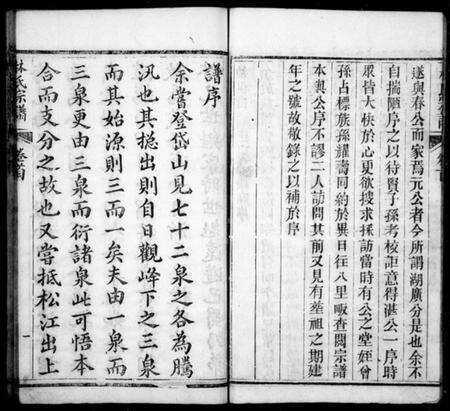 遂與春公而家焉元公者今所謂湖廣分是也余不
自揣陋序之以待賢子孫考核詎意得湛公一序時
眾皆大快於心更欲搜求採訪當時有公之堂姪曾
孫占標族孫耀壽同約於異日往八里畈查閱宗譜
本與公序不謬二人訪問其前又見有差祖之期建
年之號故敬錄之以補於序
譜序
余嘗登岱山見七十二泉之各為騰
汎也其總出則自日觀峰下之三泉
而其始源則三而一矣夫由一泉而
三泉更由三泉而衍諸泉此可悟本
合而支分之故也又嘗抵松江出上
林氏宗譜
卷首
一